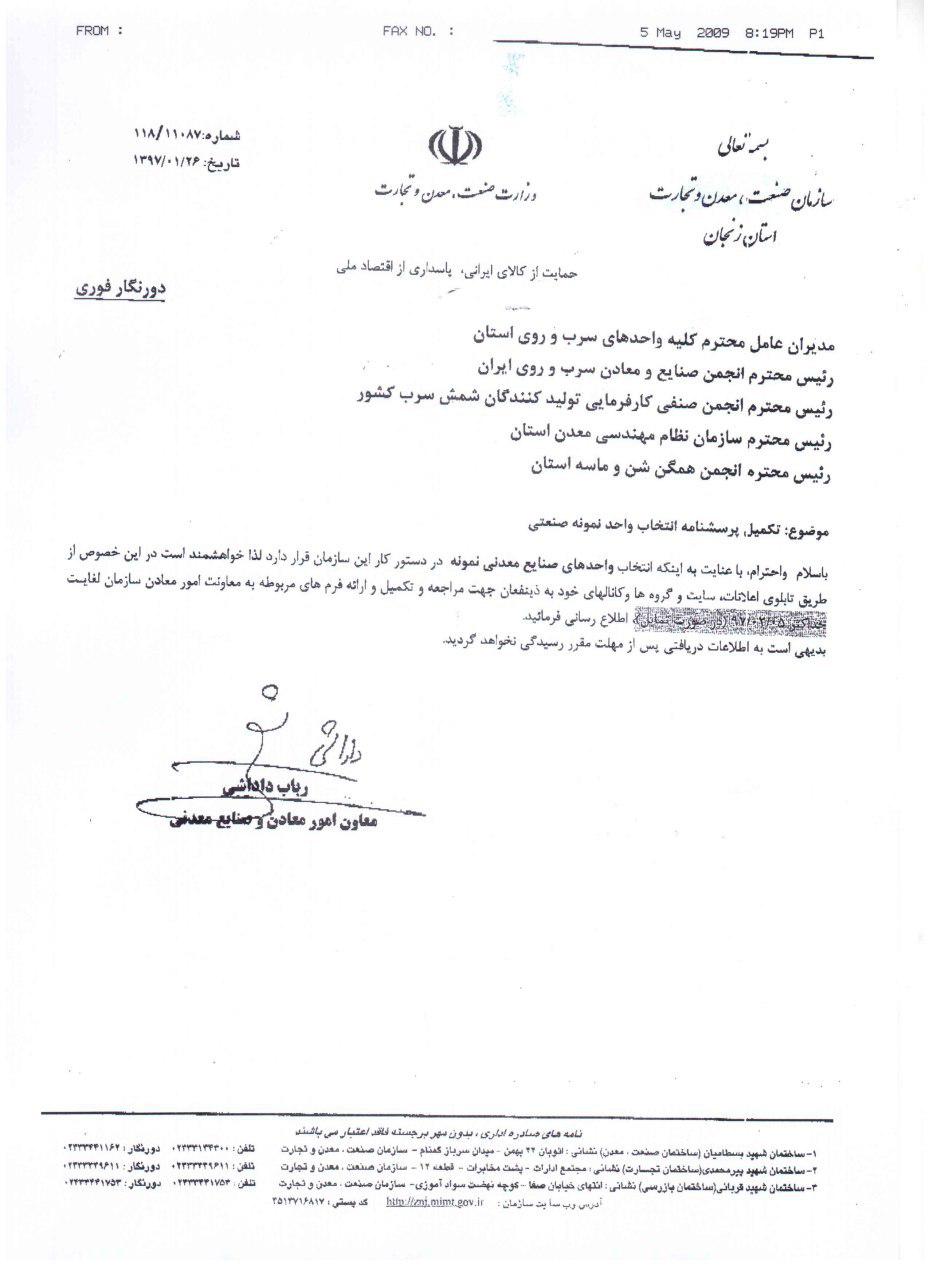 FROM : FAX NO. : 5 May 2009 8:19PM P1
بسمه تعالی
سازمان صنعت، معدن و تجارت
استان زنجان
وزارت صنعت، معدن و تجارت
شماره:۱۱۸/۱۱۰۸۷
تاریخ: ۱۳۹۷/۰۱/۲۶
حمایت از کالای ایرانی، پاسداری از اقتصاد ملی
دورنگار فوری
مدیران عامل محترم کلیه واحدهای سرب و روی استان
رئیس محترم انجمن صنایع و معادن سرب و روی ایران
رئیس محترم انجمن صنفی کارفرمایی تولید کنندگان شمش سرب کشور
رئیس محترم سازمان نظام مهندسی معدن استان
رئیس محتره انجمن همگن شن و ماسه استان
موضوع: تکمیل پرسشنامه انتخاب واحد نمونه صنعتی
باسلام واحترام، با عنایت به اینکه انتخاب واحدهای صنایع معدنی نمونه در دستور کار این سازمان قرار دارد لذا خواهشمند است در این خصوص از
طریق تابلوی اعلانات، سایت و گروه ها وکانالهای خود به ذینفعان جهت مراجعه و تکمیل و ارائه فرم های مربوطه به معاونت امور معادن سازمان لغایت
حداکثر ۹۷/۰۲/۰۵ (در صورت تمایل)، اطلاع رسانی فرمائید.
بدیهی است به اطلاعات دریافتی پس از مهلت مقرر رسیدگی نخواهد گردید.
داداشی
رباب داداشی
معاون امور معادن و صنایع معدنی
نامه های صادره اداری، بدون مهر برجسته فاقد اعتبار می باشند
۱- ساختمان شهید بسطامیان (ساختمان صنعت، معدن) نشانی : اتوبان ۲۲ بهمن - میدان سرباز گمنام - سازمان صنعت، معدن و تجارت تلفن : ۰۲۴۳۳۱۳۴۳۰۰ دورنگار : ۰۲۴۳۳۴۴۱۱۶۲
۲- ساختمان شهید پیرمحمدی(ساختمان تجسارت) نشانی : مجتمع ادارات - پشت مخابرات - قطعه ۱۲ - سازمان صنعت، معدن و تجارت تلفن : ۰۲۴۳۳۴۴۹۶۱۱ دورنگار : ۰۲۴۳۳۴۴۹۶۱۱
۳- ساختمان شهید قربانی(ساختمان بازرسی) نشانی : انتهای خیابان صفا - کوچه نهضت سواد آموزی - سازمان صنعت، معدن و تجارت تلفن : ۰۲۴۳۳۴۴۱۷۵۳ دورنگار : ۰۲۴۳۳۴۴۱۷۵۳
آدرس وب سایت سازمان : http://znj.mimt.gov.ir کد پستی : ۴۵۱۳۷۱۶۸۱۷